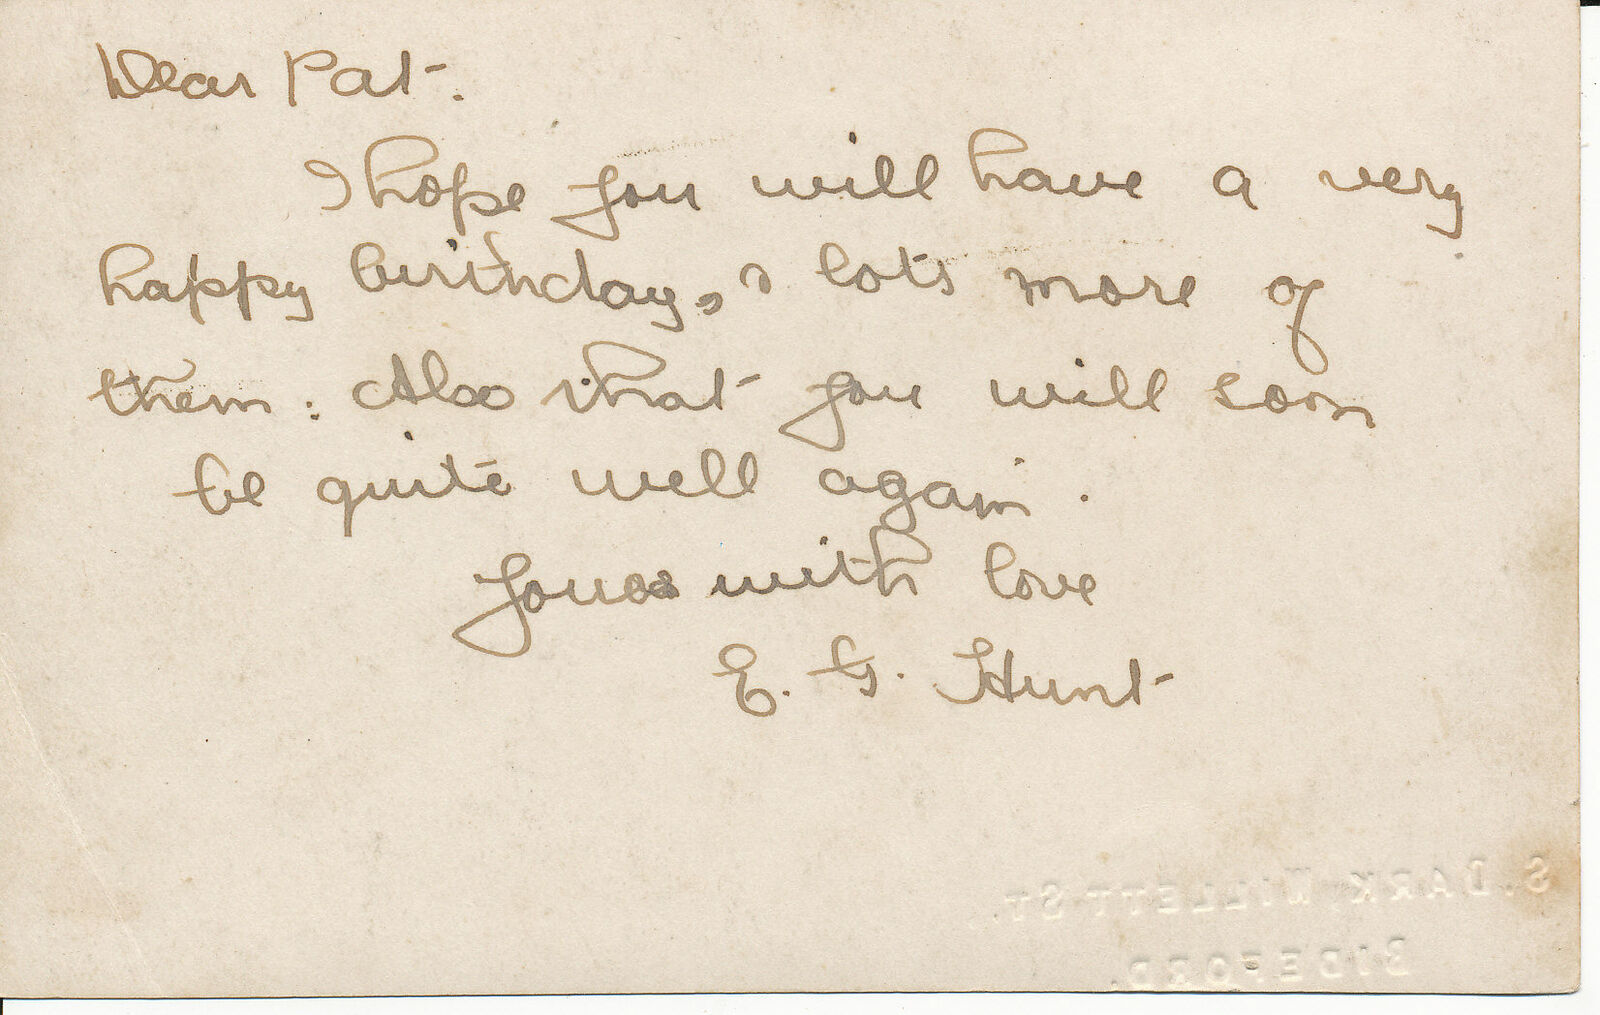 Dear Pat.
I hope you will have a very
happy birthday, & lots more of
them. Also that you will soon
be quite well again.
Yours with love
E. G. Hunt
S. DARK, WILLETT ST.
BIDEFORD.